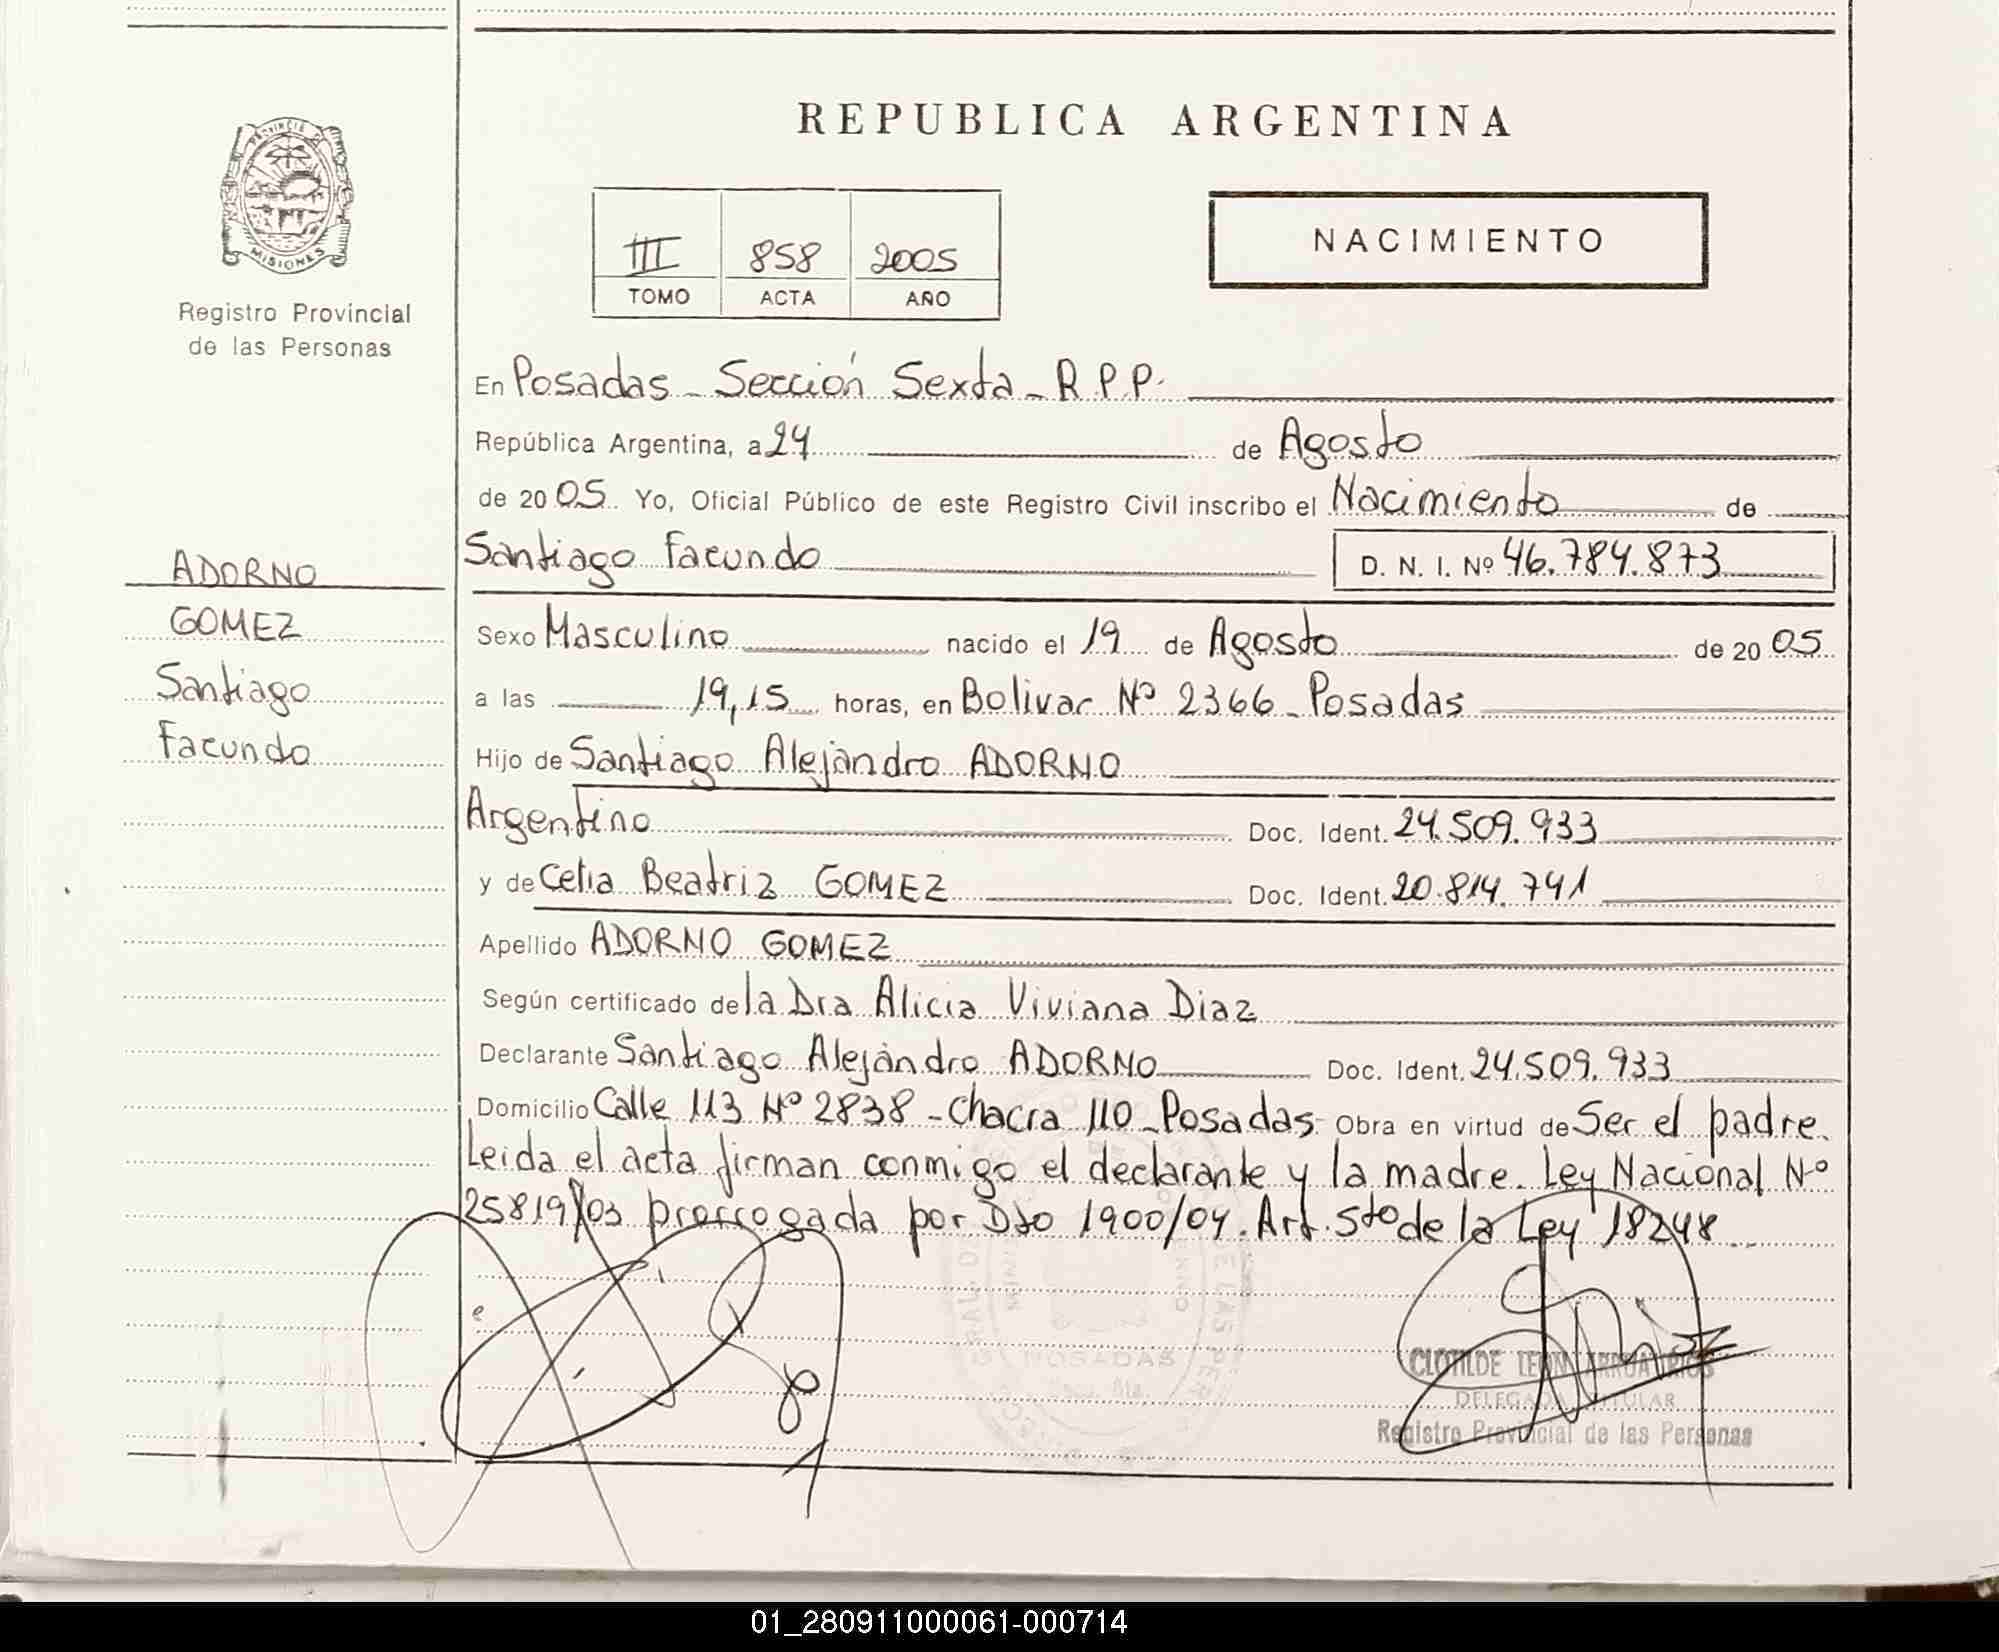 REPUBLICA ARGENTINA
PROVINCIA DE
MISIONES
Registro Provincial
de las Personas
III 858 2005
TOMO ACTA AÑO
NACIMIENTO
En Posadas - Sección Sexta - R.P.P.
República Argentina, a 24 de Agosto
de 2005. Yo, Oficial Público de este Registro Civil inscribo el Nacimiento de
Santiago Facundo D. N. I. Nº 46.784.873
ADORNO
GOMEZ
Santiago
Facundo
Sexo Masculino nacido el 19 de Agosto de 2005
a las 19,15 horas, en Bolivar Nº 2366 - Posadas
Hijo de Santiago Alejandro ADORNO
Argentino Doc. Ident. 24.509.933
y de Celia Beatriz GOMEZ Doc. Ident. 20.814.741
Apellido ADORNO GOMEZ
Según certificado de la Dra Alicia Viviana Diaz
Declarante Santiago Alejandro ADORNO Doc. Ident. 24.509.933
Domicilio Calle 113 Nº 2838 - Chacra 110 - Posadas. Obra en virtud de Ser el padre.
Leida el acta firman conmigo el declarante y la madre. Ley Nacional Nº
25819/03 prorrogada por Dto 1900/04. Art. 5to de la Ley 18248
CLOTILDE LEON
DELEGADA TITULAR
Registro Provincial de las Personas
POSADAS
01_280911000061-000714